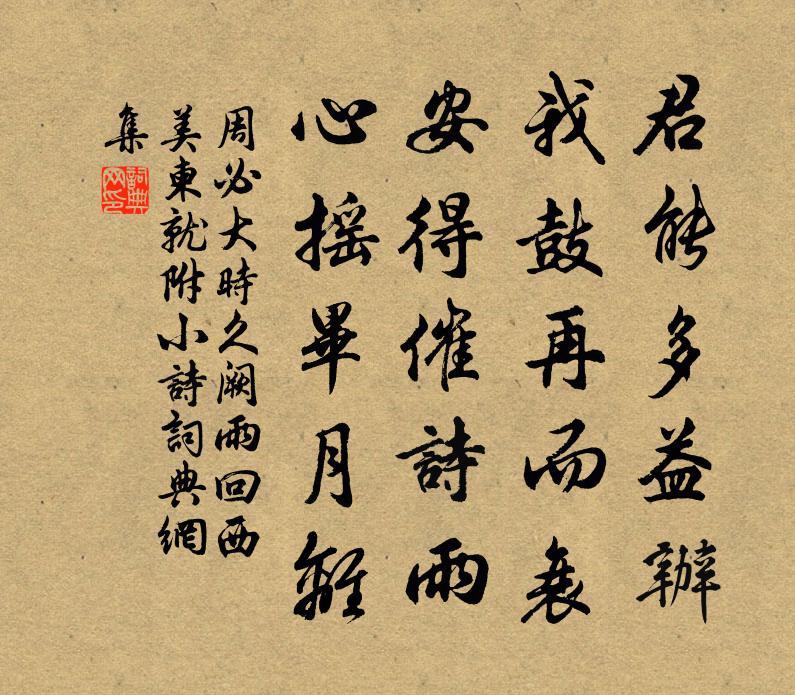 君能多益辦
我鼓再而衰
安得催詩雨
心搖畢月離
周必大時久闕雨回西
美東就附小詩詞典網
集
詞典網印